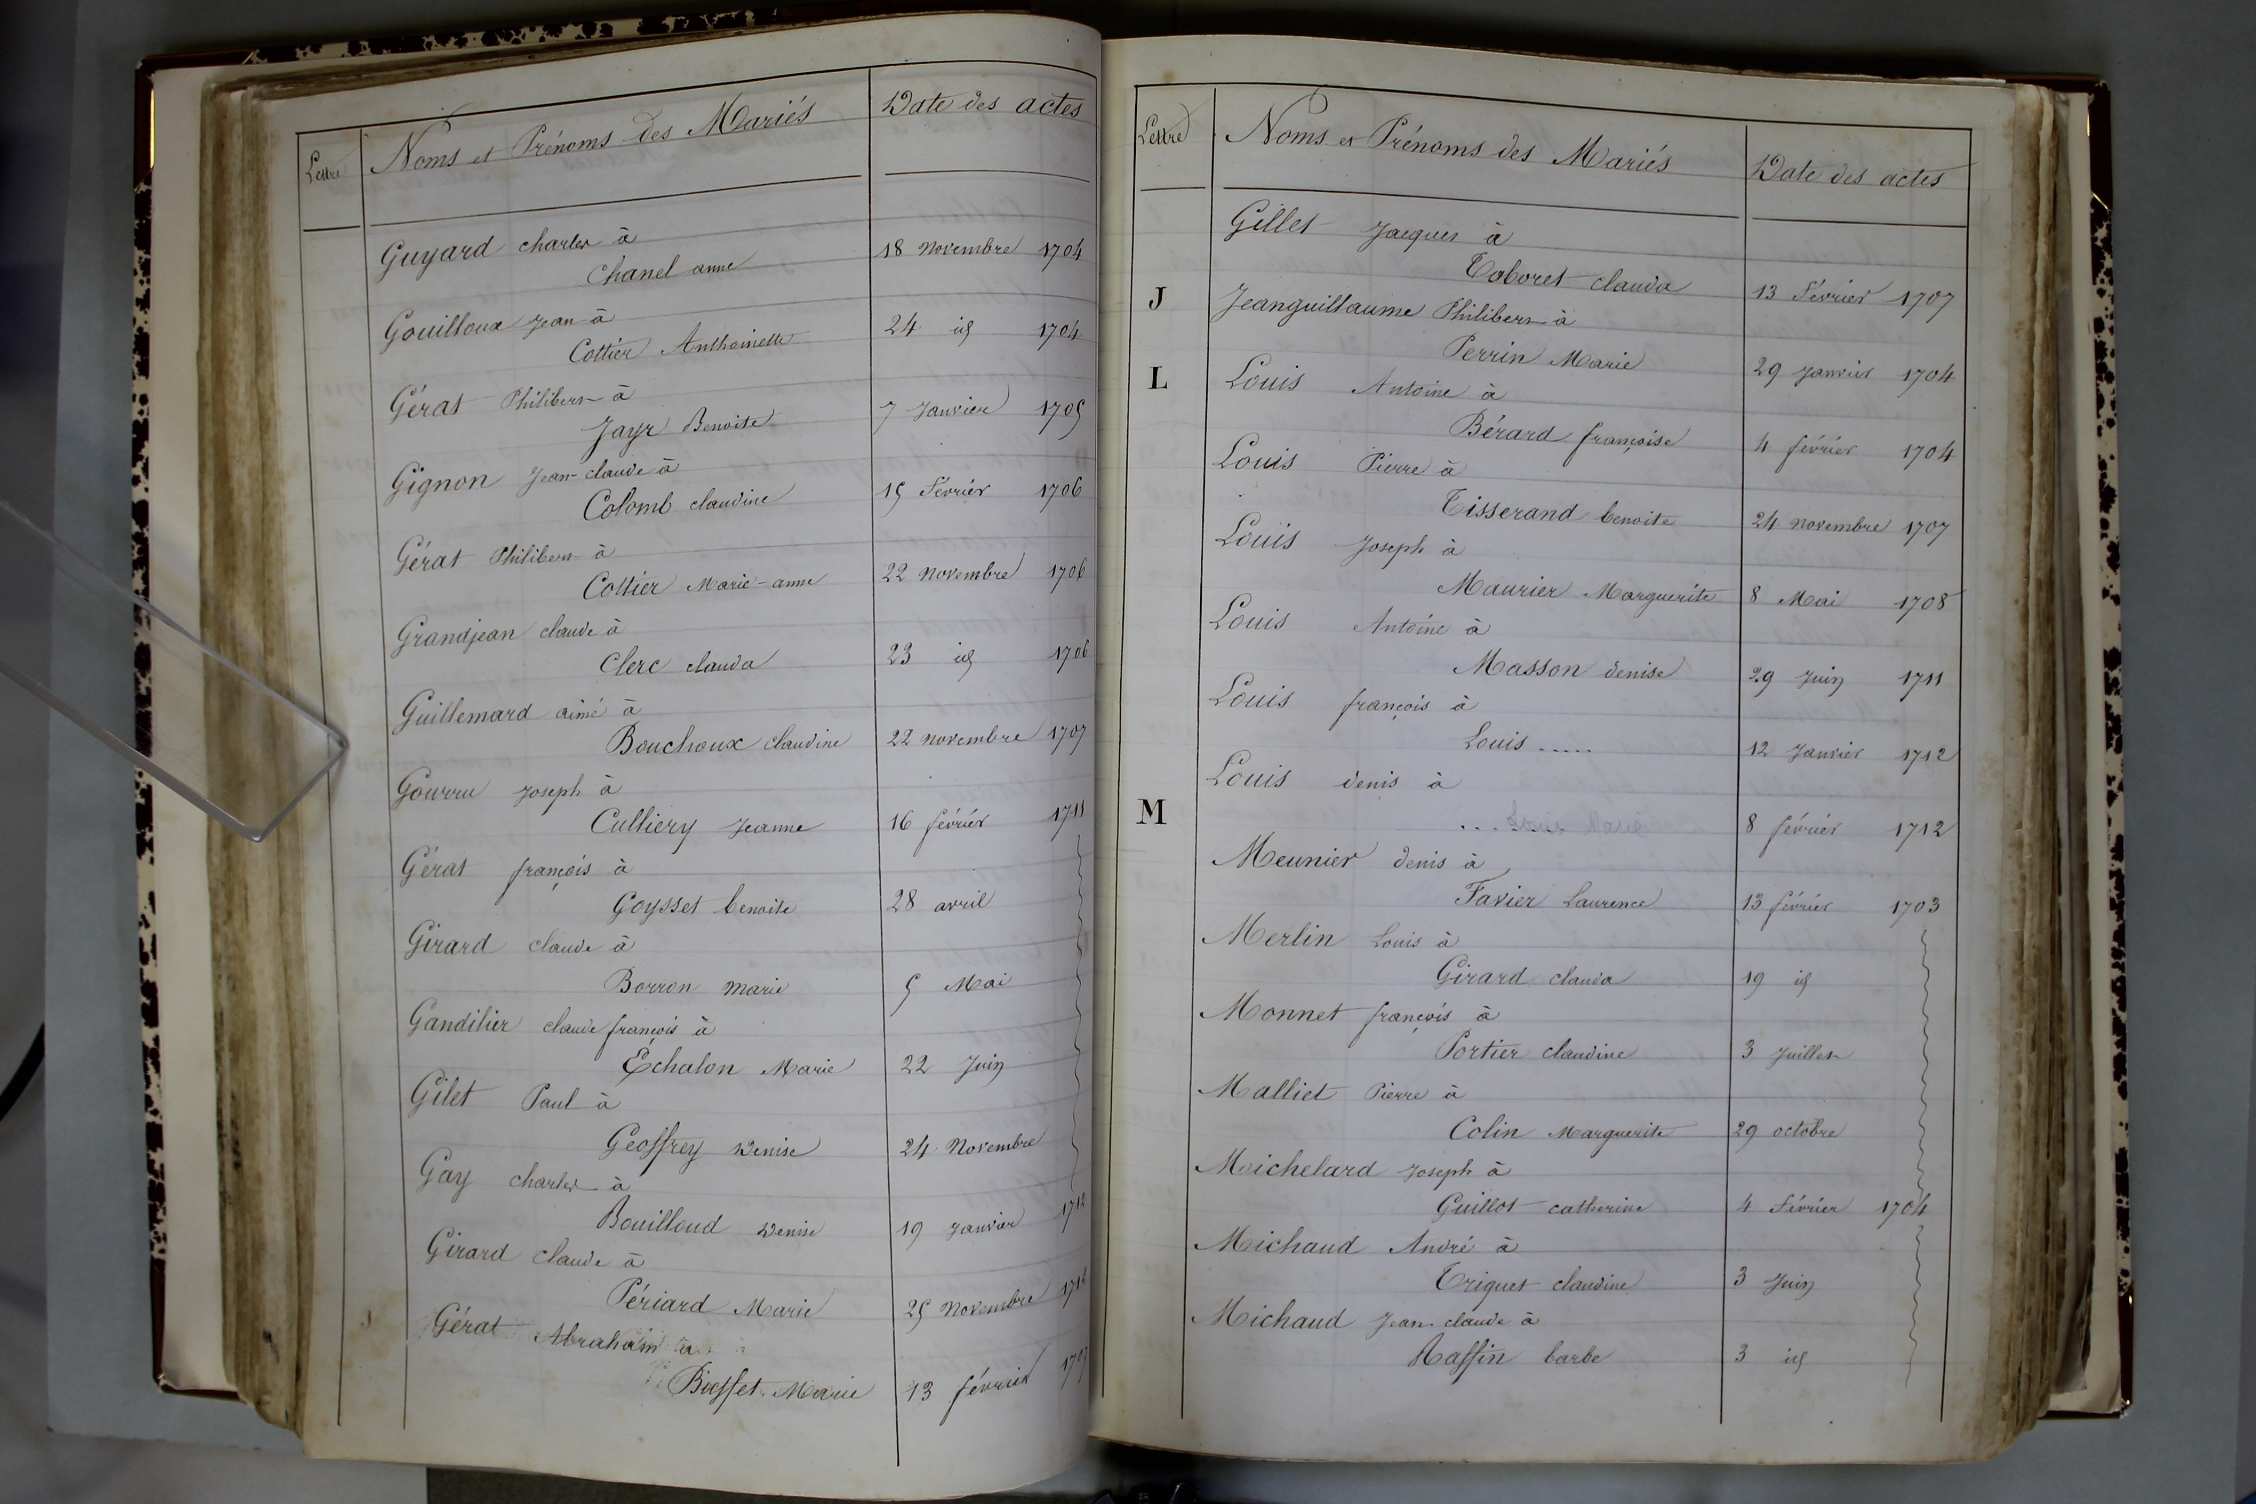 Lettre Noms et Prénoms des Mariés Date des actes
Guyard charles à
Chanel anne 18 novembre 1704
Gouilloux Jean à
Cottier Anthoinette 24 id 1704
Gérat Philibert à
Jayr Benoite 7 Janvier 1705
Gignon Jean-claude à
Colomb claudine 15 Février 1706
Gérat Philibert à
Cottier Marie-anne 22 novembre 1706
Grandjean claude à
Clerc clauda 23 id 1706
Guillemard aimé à
Bouchoux claudine 22 novembre 1707
Gourru Joseph à
Culliery Jeanne 16 février 1711
Gérat françois à
Goysset benoite 28 avril
Girard claude à
Borron marie 5 Mai
Gandilier claude françois à
Échalon Marie 22 Juin
Gilet Paul à
Geoffrey Denise 24 Novembre
Gay charles à
Bouilloud Denise 19 Janvier 1712
Girard claude à
Périard Marie 25 Novembre
Gérat Abraham à
Marie 13 février
Lettre Noms et Prénoms des Mariés Date des actes
Gillet Jacques à
Taboret clauda 13 Février 1707
J Jeanguillaume Philibert à
Perrin Marie 29 Janvier 1704
L Louis Antoine à
Bérard françoise 4 février 1704
Louis Pierre à
Tisserand benoite 24 novembre 1707
Louis Joseph à
Maurier Marguerite 8 Mai 1708
Louis Antoine à
Masson denise 29 Juin 1711
Louis françois à
Louis ..... 12 Janvier 1712
Louis denis à
M ... Louis Marie 8 février 1712
Meunier denis à
Favier Laurence 13 février 1703
Merlin Louis à
Girard clauda 19 id
Monnet françois à
Portier claudine 3 Juillet
Malliet Pierre à
Colin Marguerite 29 octobre
Michelard Joseph à
Guillot catherine 4 Février 1704
Michaud André à
Triquet claudine 3 Juin
Michaud Jean-claude à
Raffin barbe 3 id